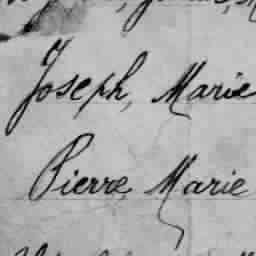 Joseph, Marie
Pierre, Marie